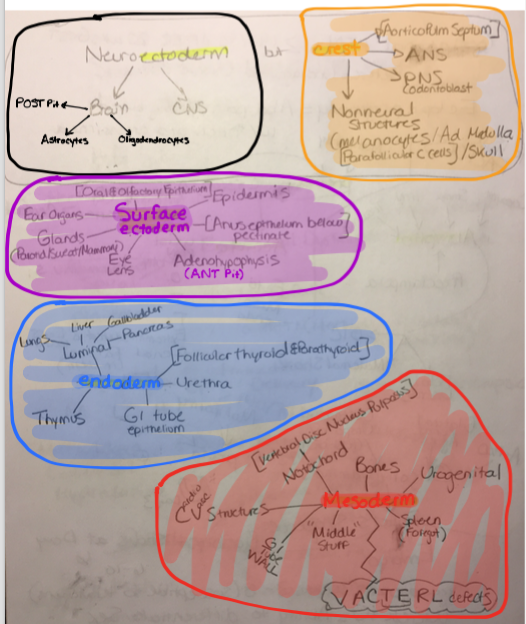 Neuroectoderm
Brain
CNS
POST Pit
Astrocytes
Oligodendrocytes
but
crest
[Aorticopulm Septum]
ANS
PNS
Codontoblast
Nonneural
Structures
(melanocytes/Ad Medulla
[Parafollicular C cells]/Skull
[Oral & Olfactory Epithelium]
Epidermis
Ear Organs
Surface
ectoderm
[Anus epithelium below
pectinate]
Glands
(Parotid/Sweat/Mammary)
Eye
Lens
Adenohypophysis
(ANT Pit)
Lungs
Liver
Gallbladder
Pancreas
Luminal
[Follicular thyroid & Parathyroid]
endoderm
Urethra
Thymus
GI tube
epithelium
[Vertebral Disc Nucleus Pulposis]
Notochord
Bones
Urogenital
Mesoderm
Cardio
Vasc
CV Structures
"Middle"
Stuff
Spleen
(Forgot)
GI
Tube
WALL
VACTERL defects